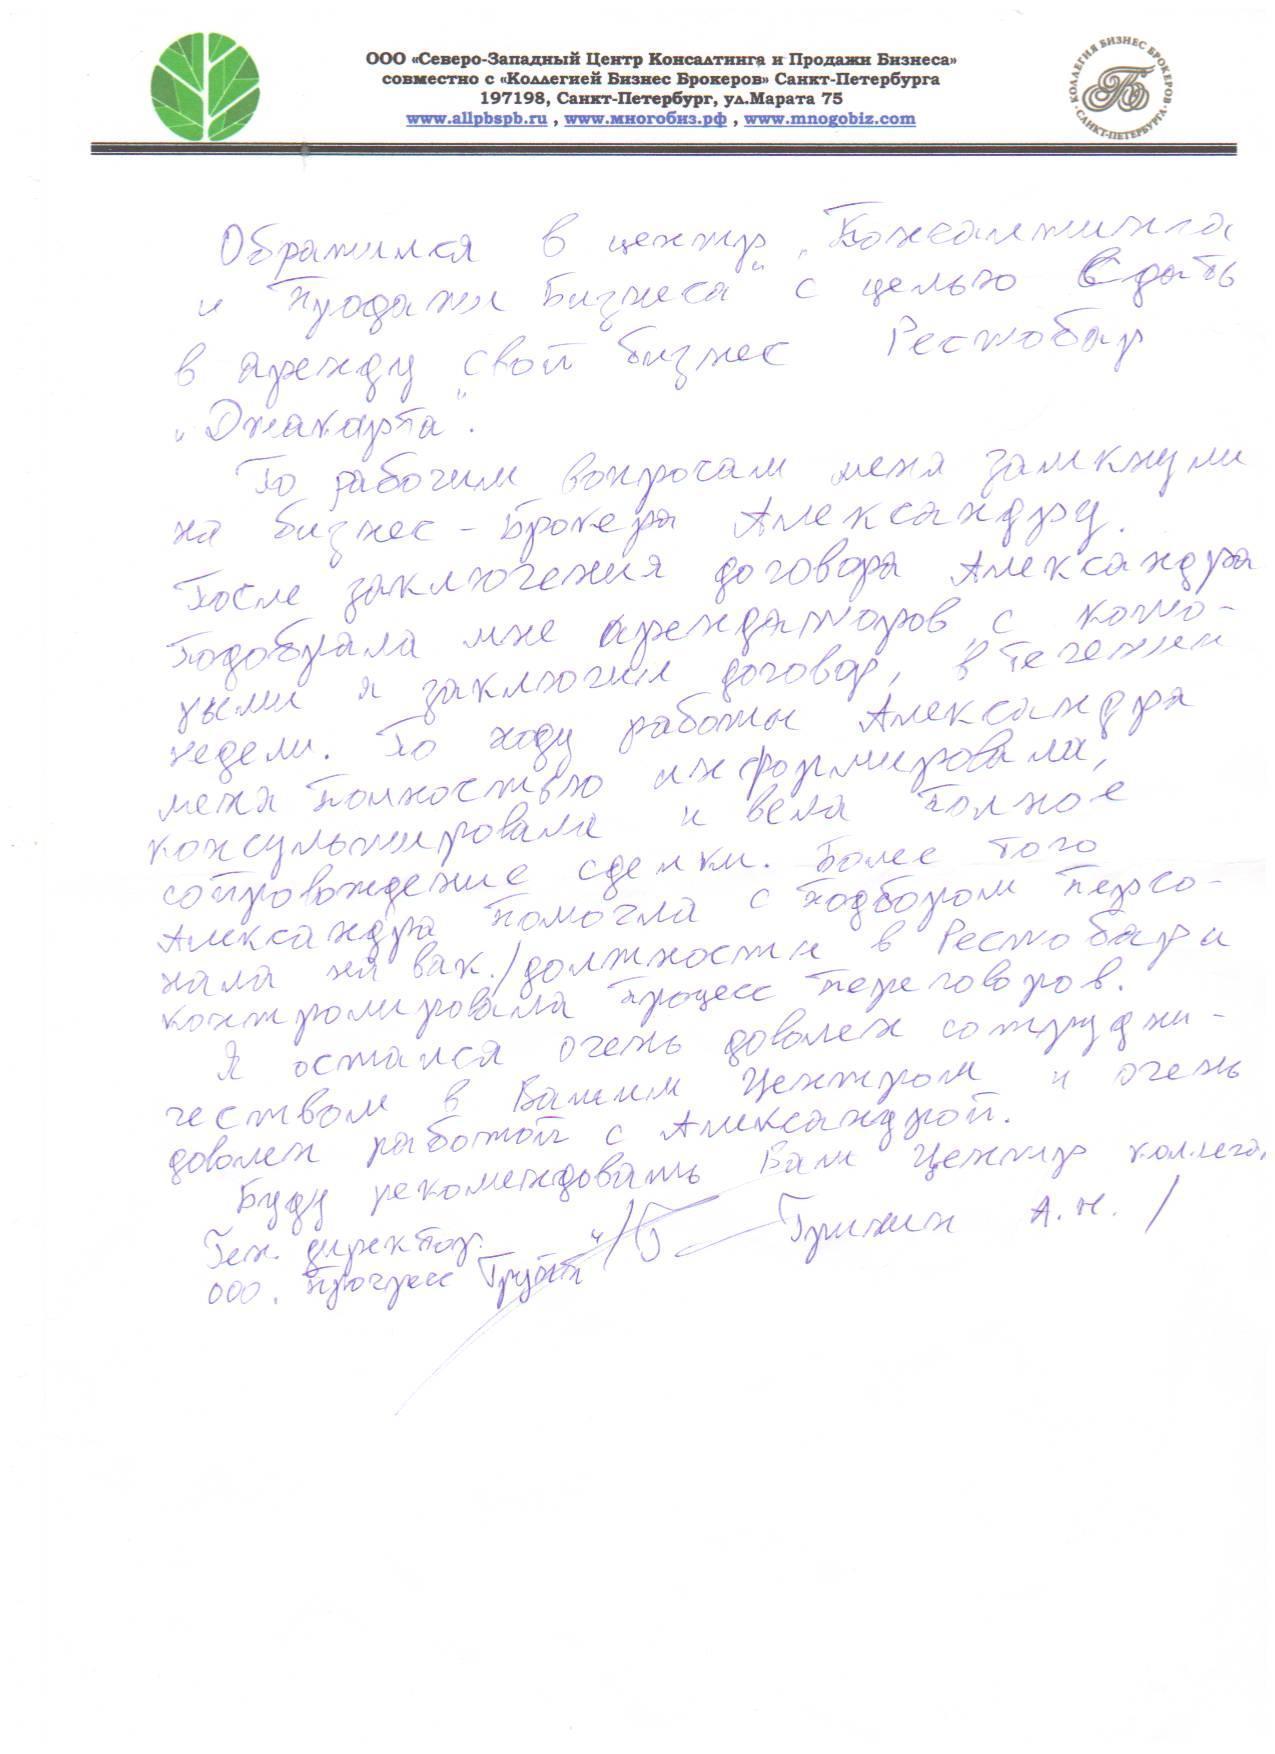 ООО «Северо-Западный Центр Консалтинга и Продажи Бизнеса»
совместно с «Коллегией Бизнес Брокеров» Санкт-Петербурга
197198, Санкт-Петербург, ул.Марата 75
www.allpbspb.ru , www.многобиз.рф , www.mnogobiz.com
КОЛЛЕГИЯ БИЗНЕС БРОКЕРОВ
САНКТ-ПЕТЕРБУРГА
Обратился в центр „Консалтинга
и Продажи Бизнеса" с целью Сдать
в аренду свой бизнес Рестобар
„Джакарта".
По рабочим вопросам меня замкнули
на бизнес-Брокера Александру.
После заключения договора Александра
подобрала мне арендаторов с кото-
рыми я заключил договор, в течении
недели. По ходу работы Александра
меня полностью информировала,
консультировала и вела полное
сопровождение сделки. Более того
Александра помогла с подбором персо-
нала на вак./должности в Рестобар и
контролировала процесс переговоров.
Я остался очень доволен сотрудни-
чеством с Вашим Центром и очень
доволен работой с Александрой.
Буду рекомендовать Ваш Центр коллегам
Ген. директор. Гришин А.Н. /
ООО „Прогресс Групп"